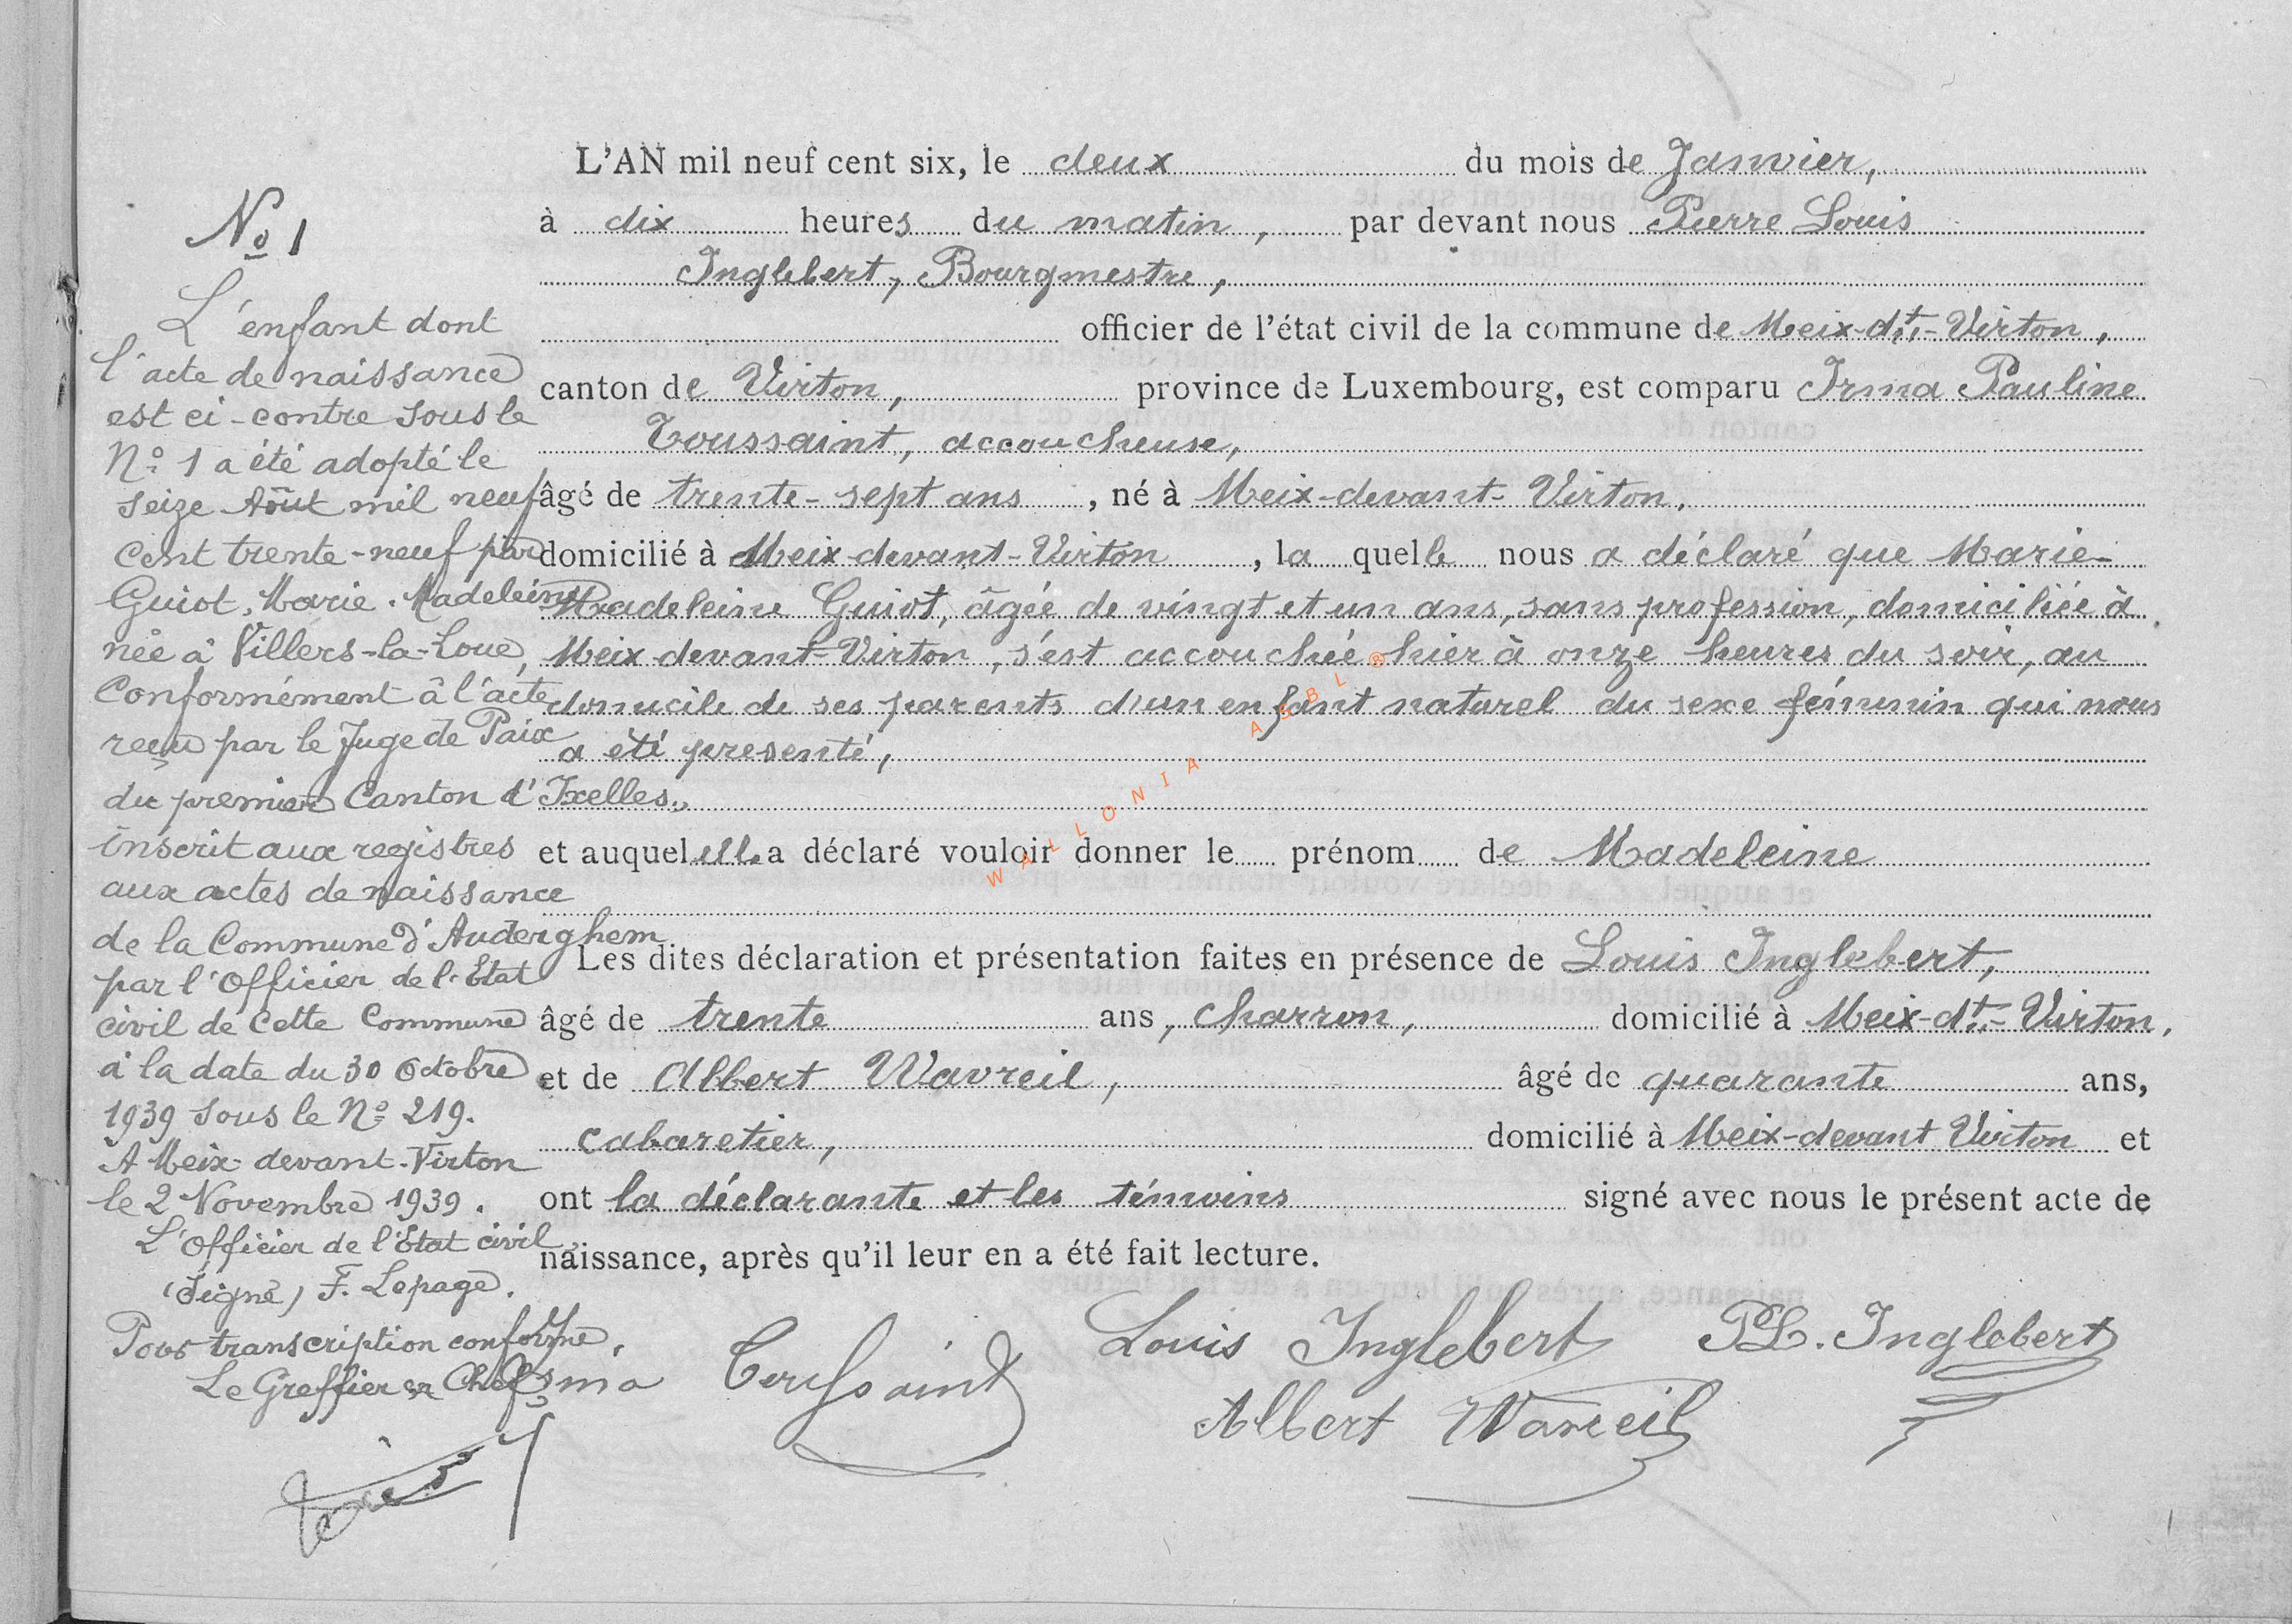 N° 1
L'enfant dont
l'acte de naissance
est ci-contre sous le
N° 1 a été adopté le
seize Août mil neuf
cent trente-neuf par
Guiot, Marie-Madeleine
née à Villers-la-Loue,
Conformément à l'acte
reçu par le Juge de Paix
du premier Canton d'Ixelles,
inscrit aux registres
aux actes de naissance
de la Commune d'Auderghem
par l'Officier de l'Etat
civil de cette Commune
à la date du 30 Octobre
1939 sous le N° 219.
A Meix-devant-Virton
le 2 Novembre 1939.
L'Officier de l'Etat civil,
(Signé) F. Lepage.
Pour transcription conforme,
Le Greffier en Chef,
L'AN mil neuf cent six, le deux du mois de Janvier,
à dix heures du matin, par devant nous Pierre Louis
Inglebert, Bourgmestre,
officier de l'état civil de la commune de Meix-dt-Virton,
canton de Virton, province de Luxembourg, est comparu Irma Pauline
Toussaint, accoucheuse,
âgé de trente-sept ans, né à Meix-devant-Virton,
domicilié à Meix-devant-Virton, la quelle nous a déclaré que Marie-
Madeleine Guiot, âgée de vingt et un ans, sans profession, domiciliée à
Meix-devant-Virton, s'est accouchée hier à onze heures du soir, au
domicile de ses parents d'un enfant naturel du sexe féminin qui nous
a été presenté,
et auquel elle a déclaré vouloir donner le prénom de Madeleine
Les dites déclaration et présentation faites en présence de Louis Inglebert,
âgé de trente ans, charron, domicilié à Meix-dt-Virton,
et de Albert Wavreil, âgé de quarante ans,
cabaretier, domicilié à Meix-devant Virton et
ont la déclarante et les témoins signé avec nous le présent acte de
naissance, après qu'il leur en a été fait lecture.
Irma Toussaint Louis Inglebert PL. Inglebert
Albert Wavreil
WALLONIA ASBL®